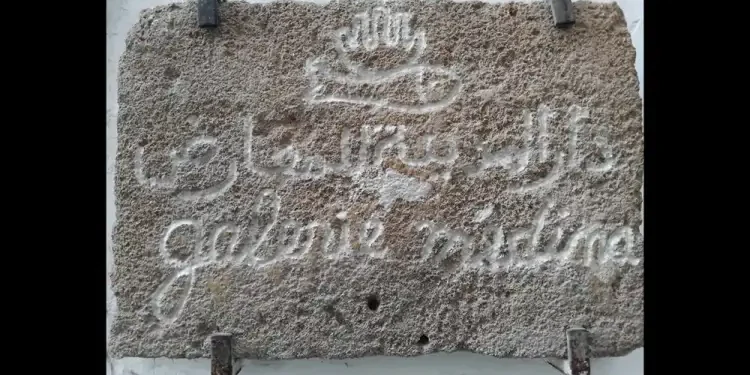 دار المدينة للمعارض
galerie médina